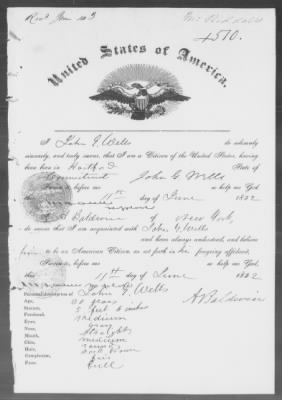 4510.
United States of America.
I John G Wells do solemnly
sincerely, and truly swear, that I am a Citizen of the United States, having
been born in Hartford State of
Connecticut John G Wells
Sworn before me so help me God
11th day of June 1862
A Baldwin of New York,
do swear that I am acquainted with John G Wells
and have always understood, and believe
him to be an American Citizen, as set forth in his foregoing affidavit,
Sworn before me so help me God
this 11th day of June 1862
A Baldwin
Personal description of John G. Wells
Age, 40 years
Stature, 5 feet 6 inches
Forehead, medium
Eyes, Gray
Nose, Straight
Mouth, medium
Chin,
Hair, Dark brown
Complexion, fair
Face, full